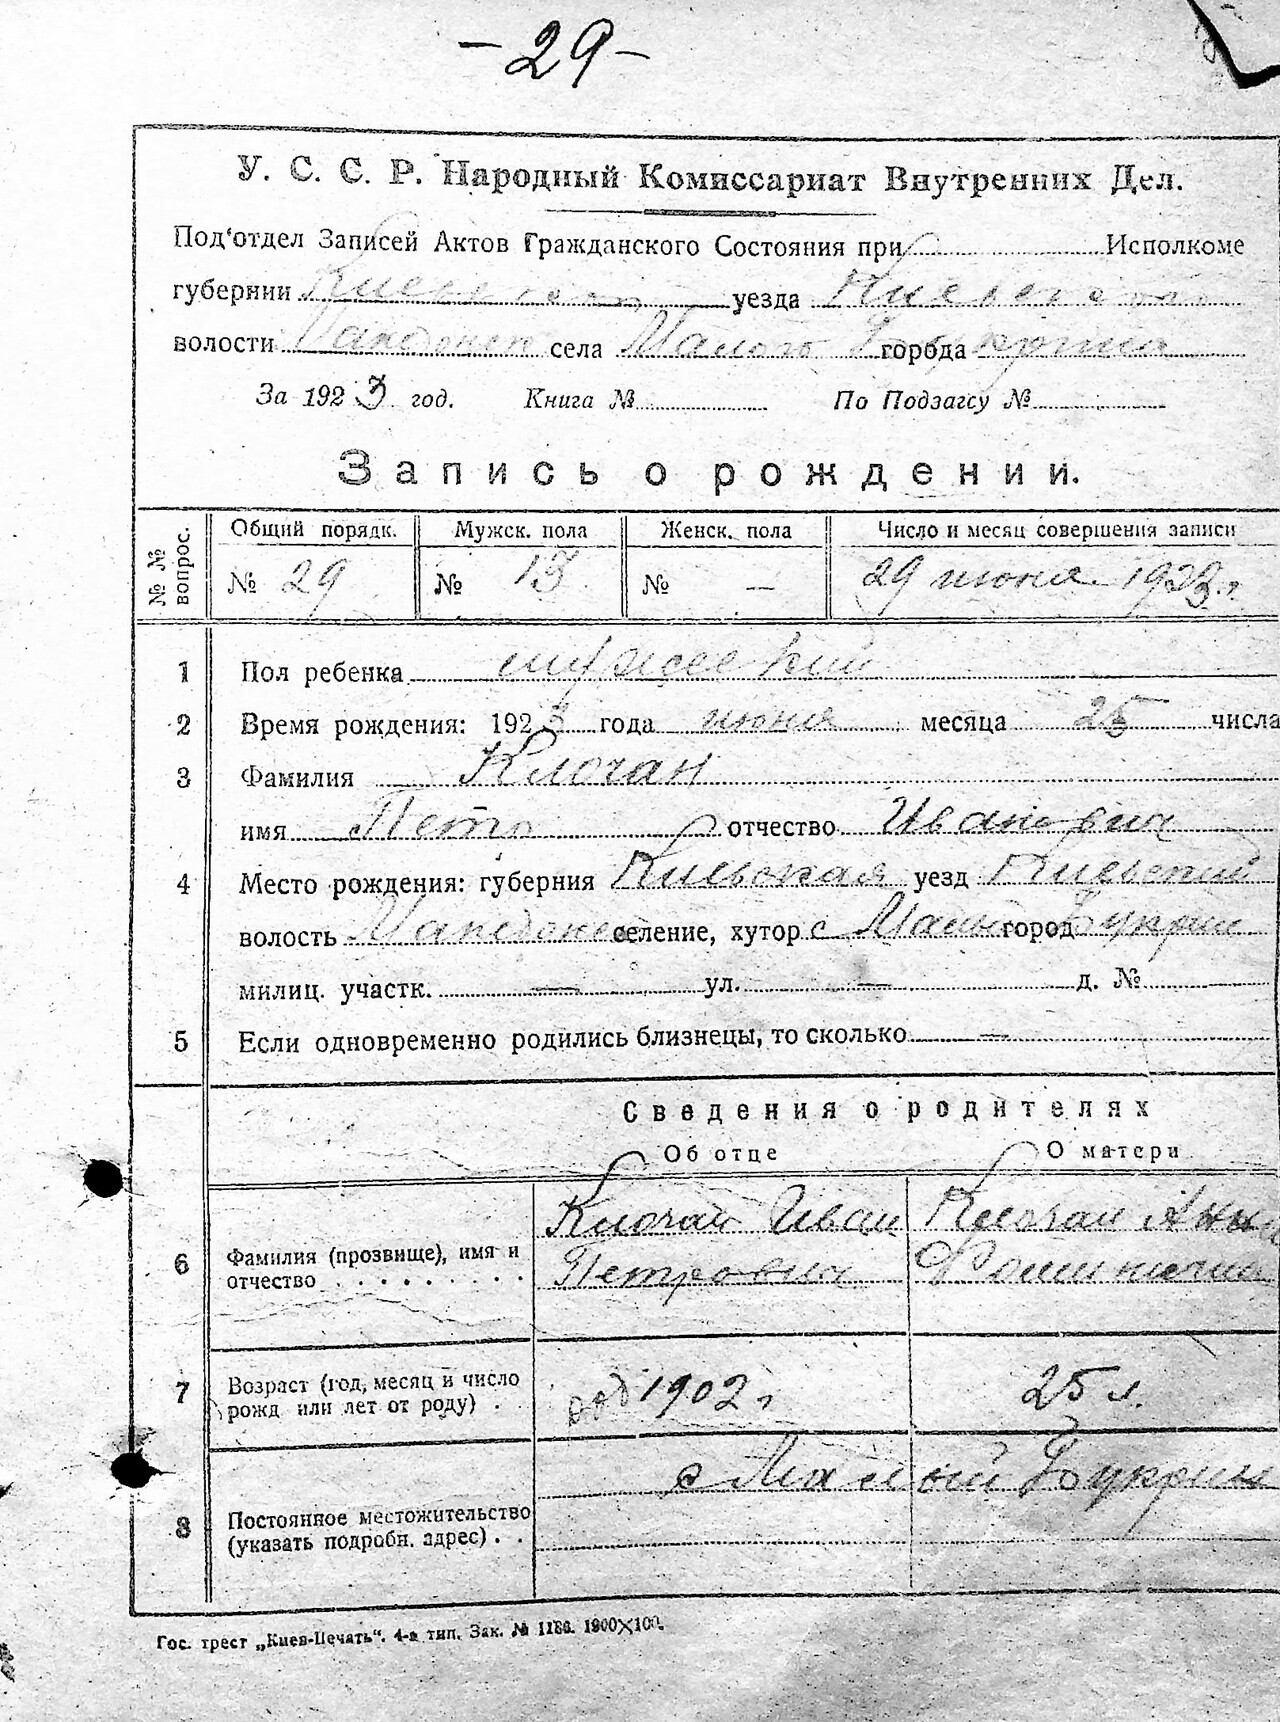 -29-
У. С. С. Р. Народный Комиссариат Внутренних Дел.
Под‘отдел Записей Актов Гражданского Состояния при Исполкоме
губернии Киевской уезда Киевского
волости села Малого города Букрина
За 1923 год. Книга № По Подзагсу №
Запись о рождении.
№ № вопрос.
Общий порядк. Мужск. пола Женск. пола Число и месяц совершения записи
№ 29 № 13 № — 29 июня 1923 г.
1 Пол ребенка мужской
2 Время рождения: 1923 года июня месяца 25 числа
3 Фамилия Клочан
имя Петр отчество Иванович
4 Место рождения: губерния Киевская уезд Киевский
волость селение, хутор с Малый город Букрин
милиц. участк. — ул. — д. № —
5 Если одновременно родились близнецы, то сколько —
Сведения о родителях
Об отце О матери
6 Фамилия (прозвище), имя и отчество
Клочан Иван Клочан Анна
Петрович
7 Возраст (год, месяц и число рожд или лет от роду)
1902 г 25 л.
8 Постоянное местожительство (указать подробн. адрес)
с Малый Букрин
Гос. трест „Киев-Печать“. 4-я тип. Зак. № 1186. 1900×100.